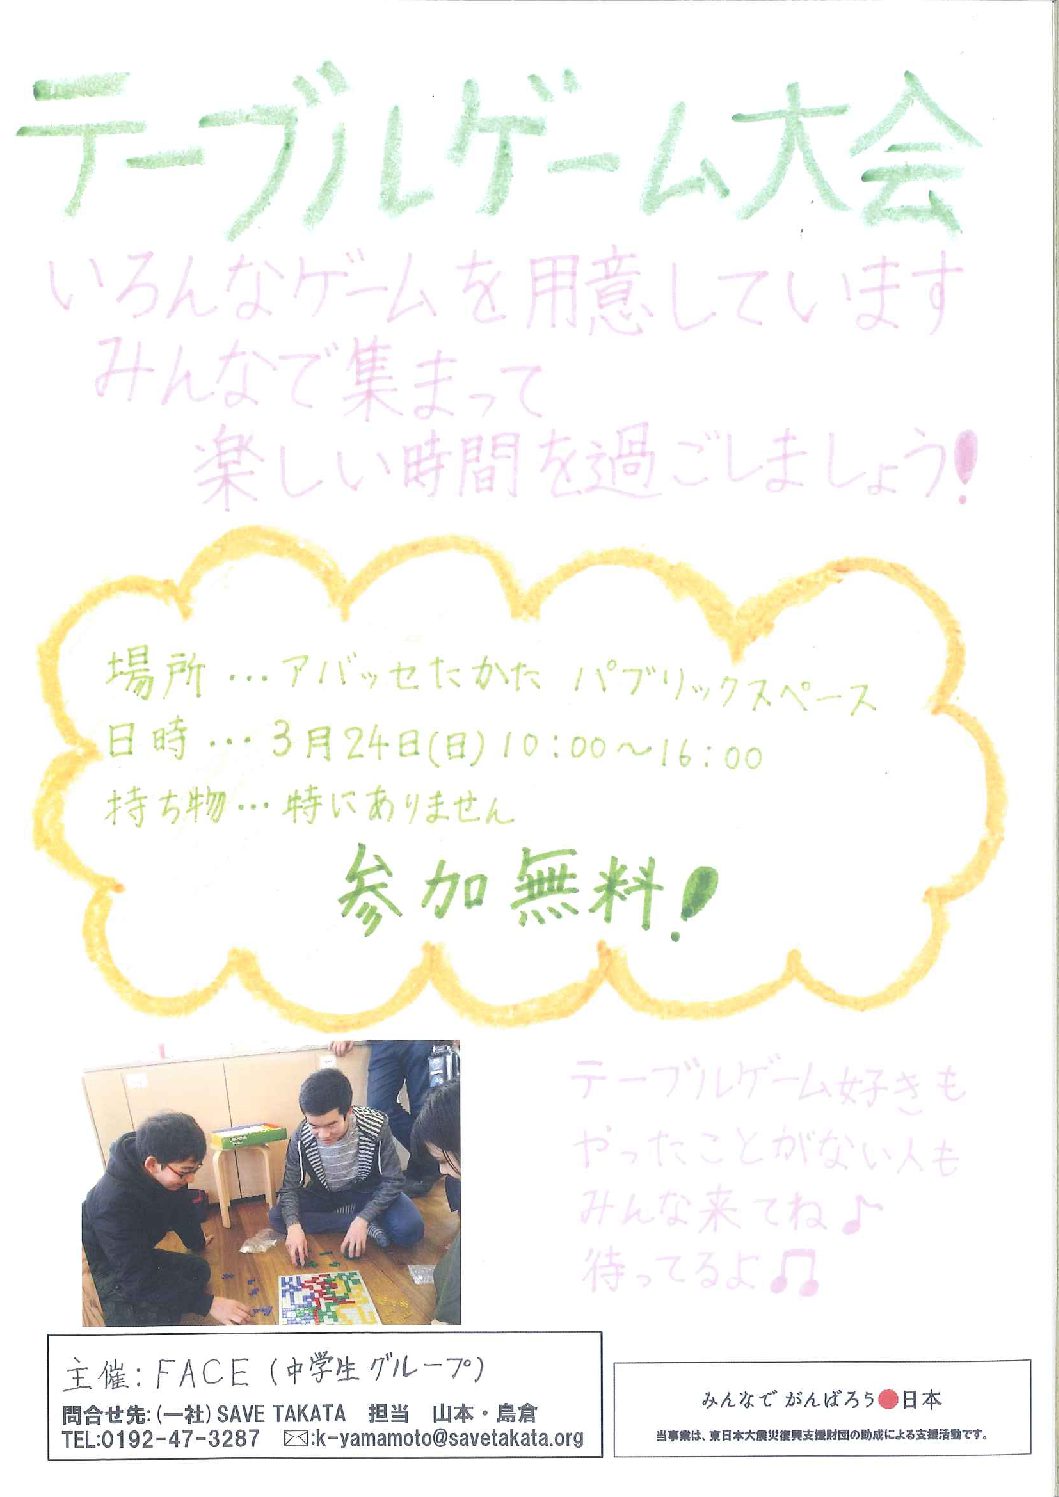 テーブルゲーム大会
いろんなゲームを用意しています
みんなで集まって
楽しい時間を過ごしましょう!
場所…アバッセたかた パブリックスペース
日時…3月24日(日)10:00〜16:00
持ち物…特にありません
参加無料!
テーブルゲーム好きも
やったことがない人も
みんな来てね♪
待ってるよ♫
主催:FACE(中学生グループ)
問合せ先:(一社)SAVE TAKATA 担当 山本・島倉
TEL:0192-47-3287 ✉:k-yamamoto@savetakata.org
みんなで がんばろう●日本
当事業は、東日本大震災復興支援財団の助成による支援活動です。